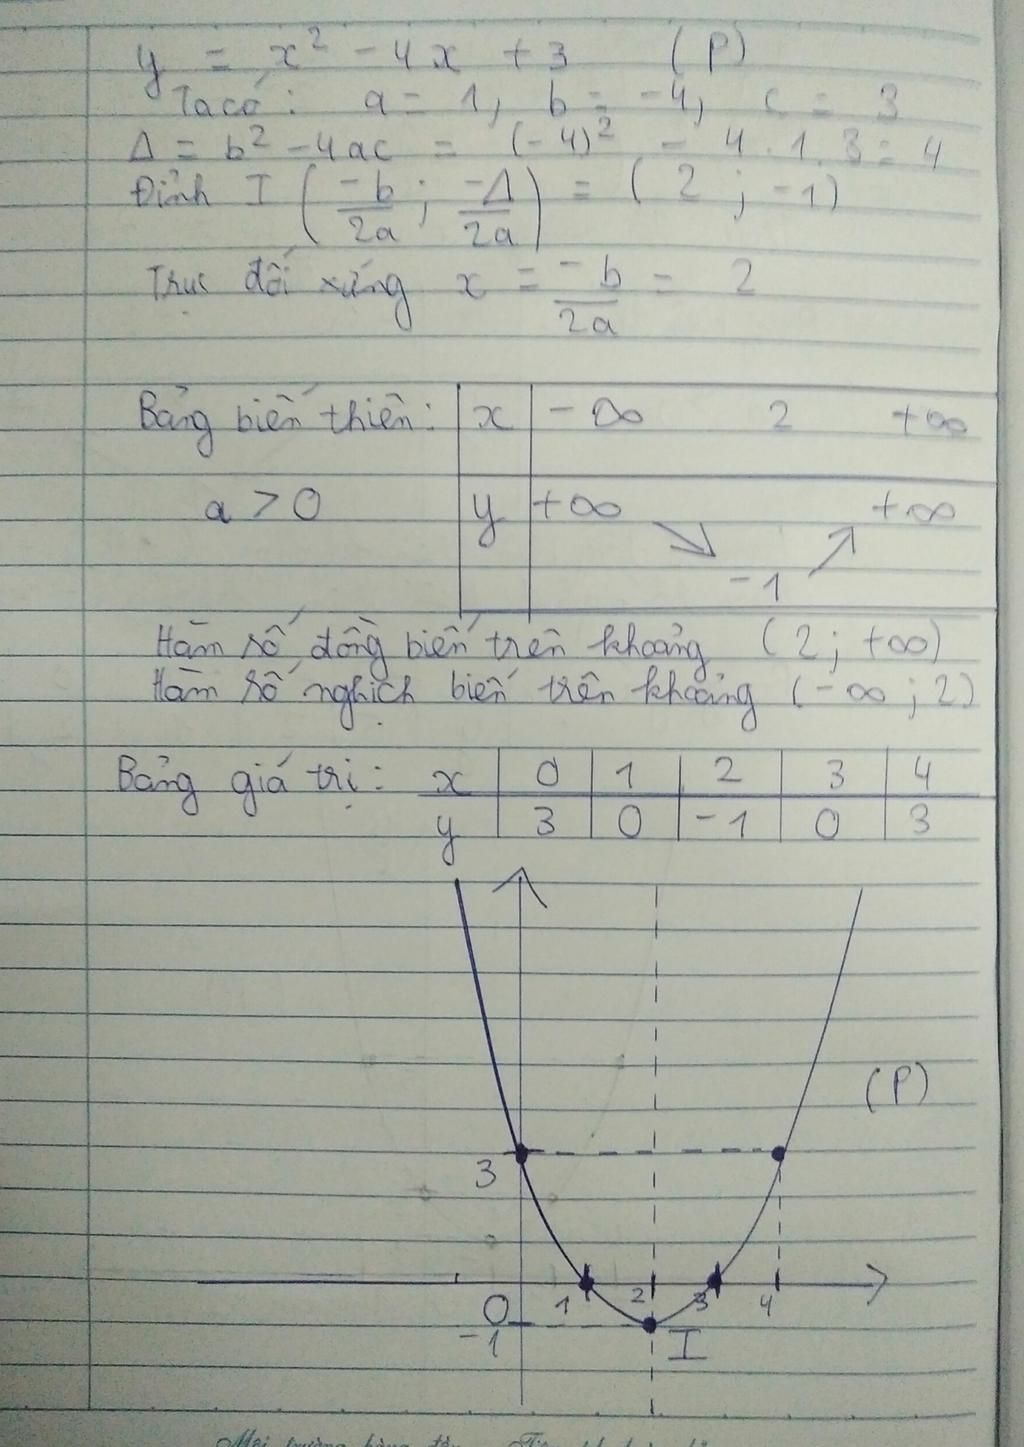 y = x² - 4x + 3 (P)
Ta có: a = 1, b = -4, c = 3
Δ = b² - 4ac = (-4)² - 4.1.3 = 4
Đỉnh I (-b/2a ; -Δ/2a) = (2 ; -1)
Trục đối xứng x = -b/2a = 2
Bảng biến thiên: x -∞ 2 +∞
a > 0 y +∞ ↘ -1 ↗ +∞
Hàm số đồng biến trên khoảng (2; +∞)
Hàm số nghịch biến trên khoảng (-∞; 2)
Bảng giá trị: x 0 1 2 3 4
y 3 0 -1 0 3
(P)
3
0 1 2 3 4
-1 I